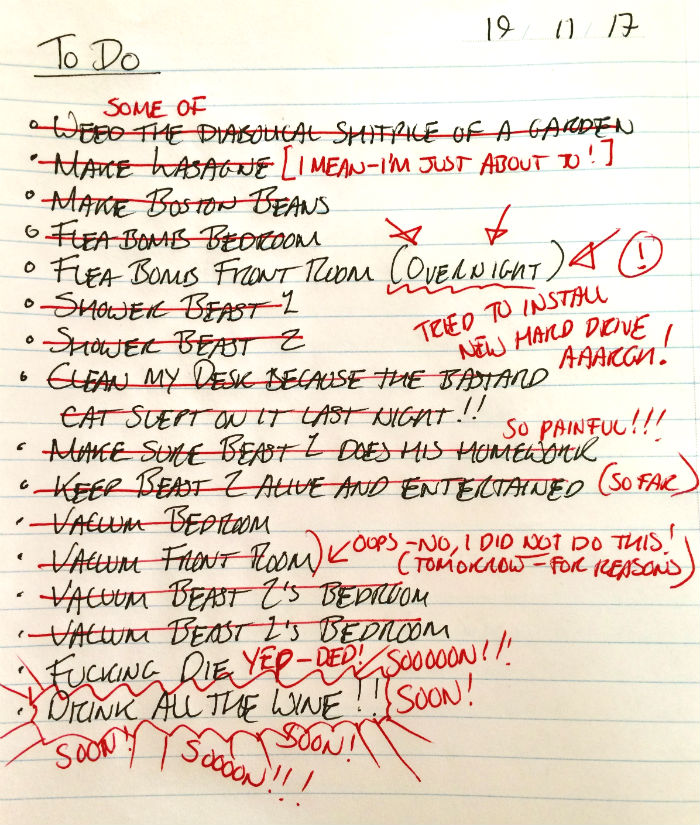 19 / 11 / 17
To Do
SOME OF
• WEED THE DIABOLICAL SHITPILE OF A GARDEN
• MAKE LASAGNE [I MEAN-I'M JUST ABOUT TO!]
• MAKE BOSTON BEANS
• FLEA BOMB BEDROOM
• FLEA BOMB FRONT ROOM (OVERNIGHT) !
• SHOWER BEAST 1
TRIED TO INSTALL
• SHOWER BEAST 2
NEW HARD DRIVE
AAARGH!
• CLEAN MY DESK BECAUSE THE BASTARD
CAT SLEPT ON IT LAST NIGHT!!
SO PAINFUL!!!
• MAKE SURE BEAST 1 DOES HIS HOMEWORK
• KEEP BEAST 2 ALIVE AND ENTERTAINED (SO FAR)
• VACUUM BEDROOM
• VACUUM FRONT ROOM) OOPS-NO, I DID NOT DO THIS!
(TOMORROW-FOR REASONS)
• VACUUM BEAST 2'S BEDROOM
• VACUUM BEAST 1'S BEDROOM
• FUCKING DIE YEP-DED! SOOOOON!!!
• DRINK ALL THE WINE!! SOON!
SOON! SOOOON!!! SOON!